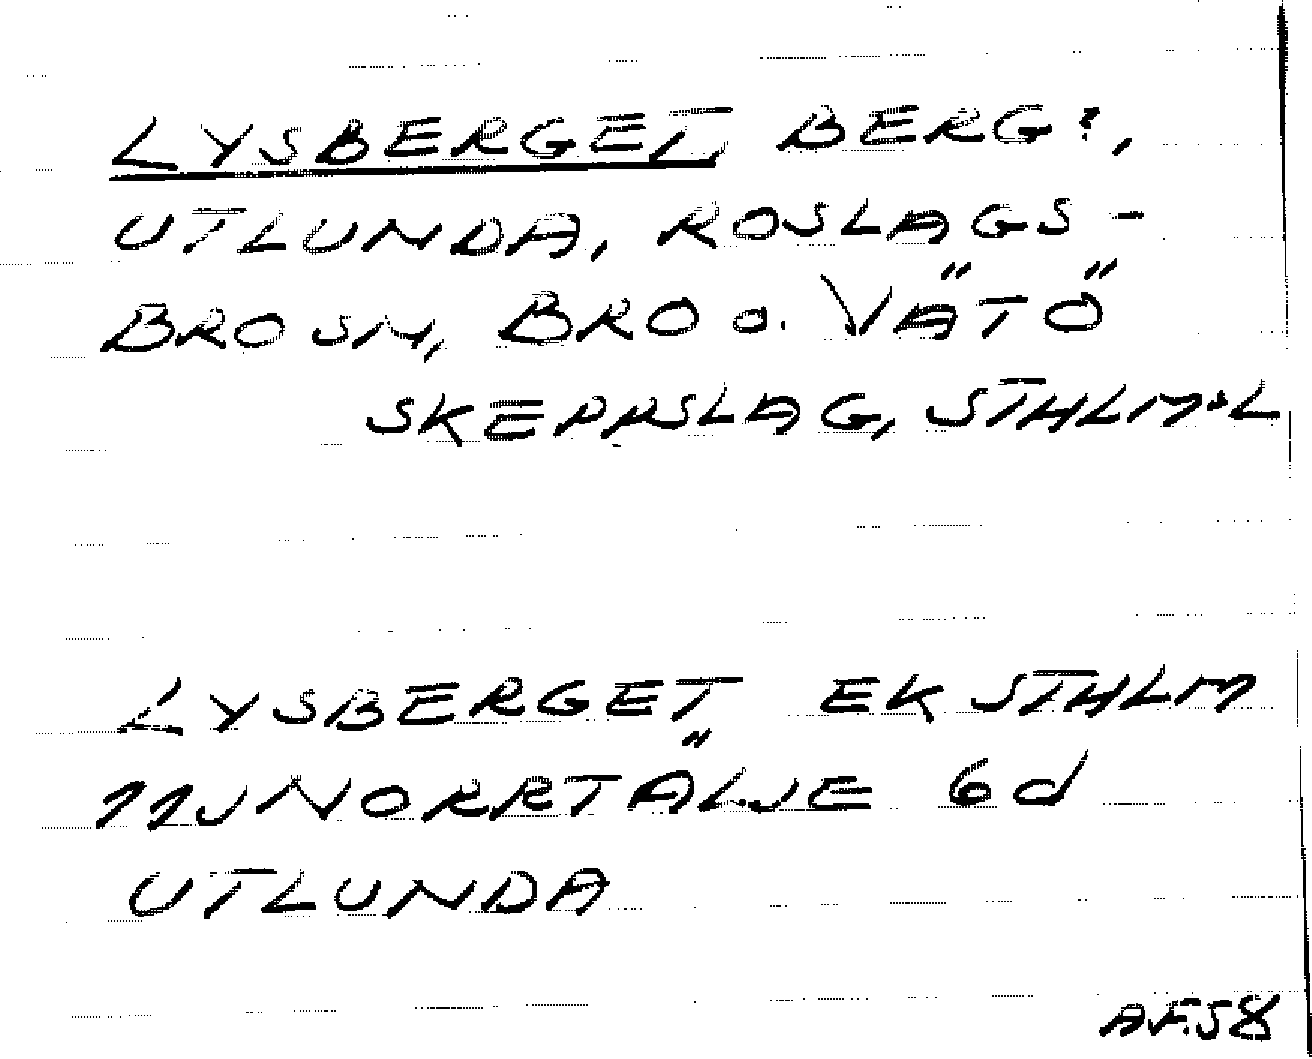 LYSBERGET BERG?,
UTLUNDA, ROSLAGS-
BRO SN, BRO O. VÄTÖ
SKEPPSLAG, STHLM:L
LYSBERGET EK STHLM
11J NORRTÄLJE 6d
UTLUNDA
A.F.58